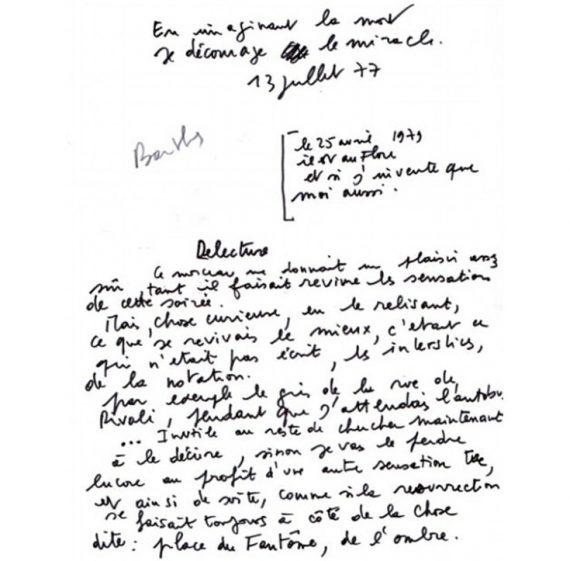 En imaginant la mort
je décourage le miracle.
13 juillet 77
Barthes
le 25 avril 1979
il est au Flore
et si j'invente que
moi aussi.
Relecture
Ce morceau me donnait un plaisir assez
sûr, tant il faisait revivre les sensations
de cette soirée.
Mais, chose curieuse, en le relisant,
ce que je revivais le mieux, c'était ce
qui n'était pas écrit, les interstices,
de la notation.
par exemple le gris de la rue de,
Rivoli, pendant que j'attendais l'autobus.
... Inutile au reste de chercher maintenant
à le décrire, sinon je vas le perdre
encore au profit d'une autre sensation tue,
et ainsi de suite, comme si la resurrection
se faisait toujours à côté de la chose
dite : place du Fantôme, de l'ombre.